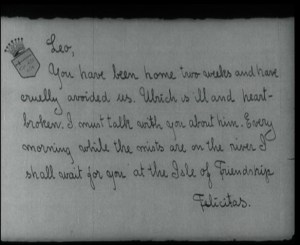 Leo,
You have been home two weeks and have
cruelly avoided us. Ulrich is ill and heart-
broken. I must talk with you about him. Every
morning while the mists are on the river I
shall wait for you at the Isle of Friendship
Felicitas.